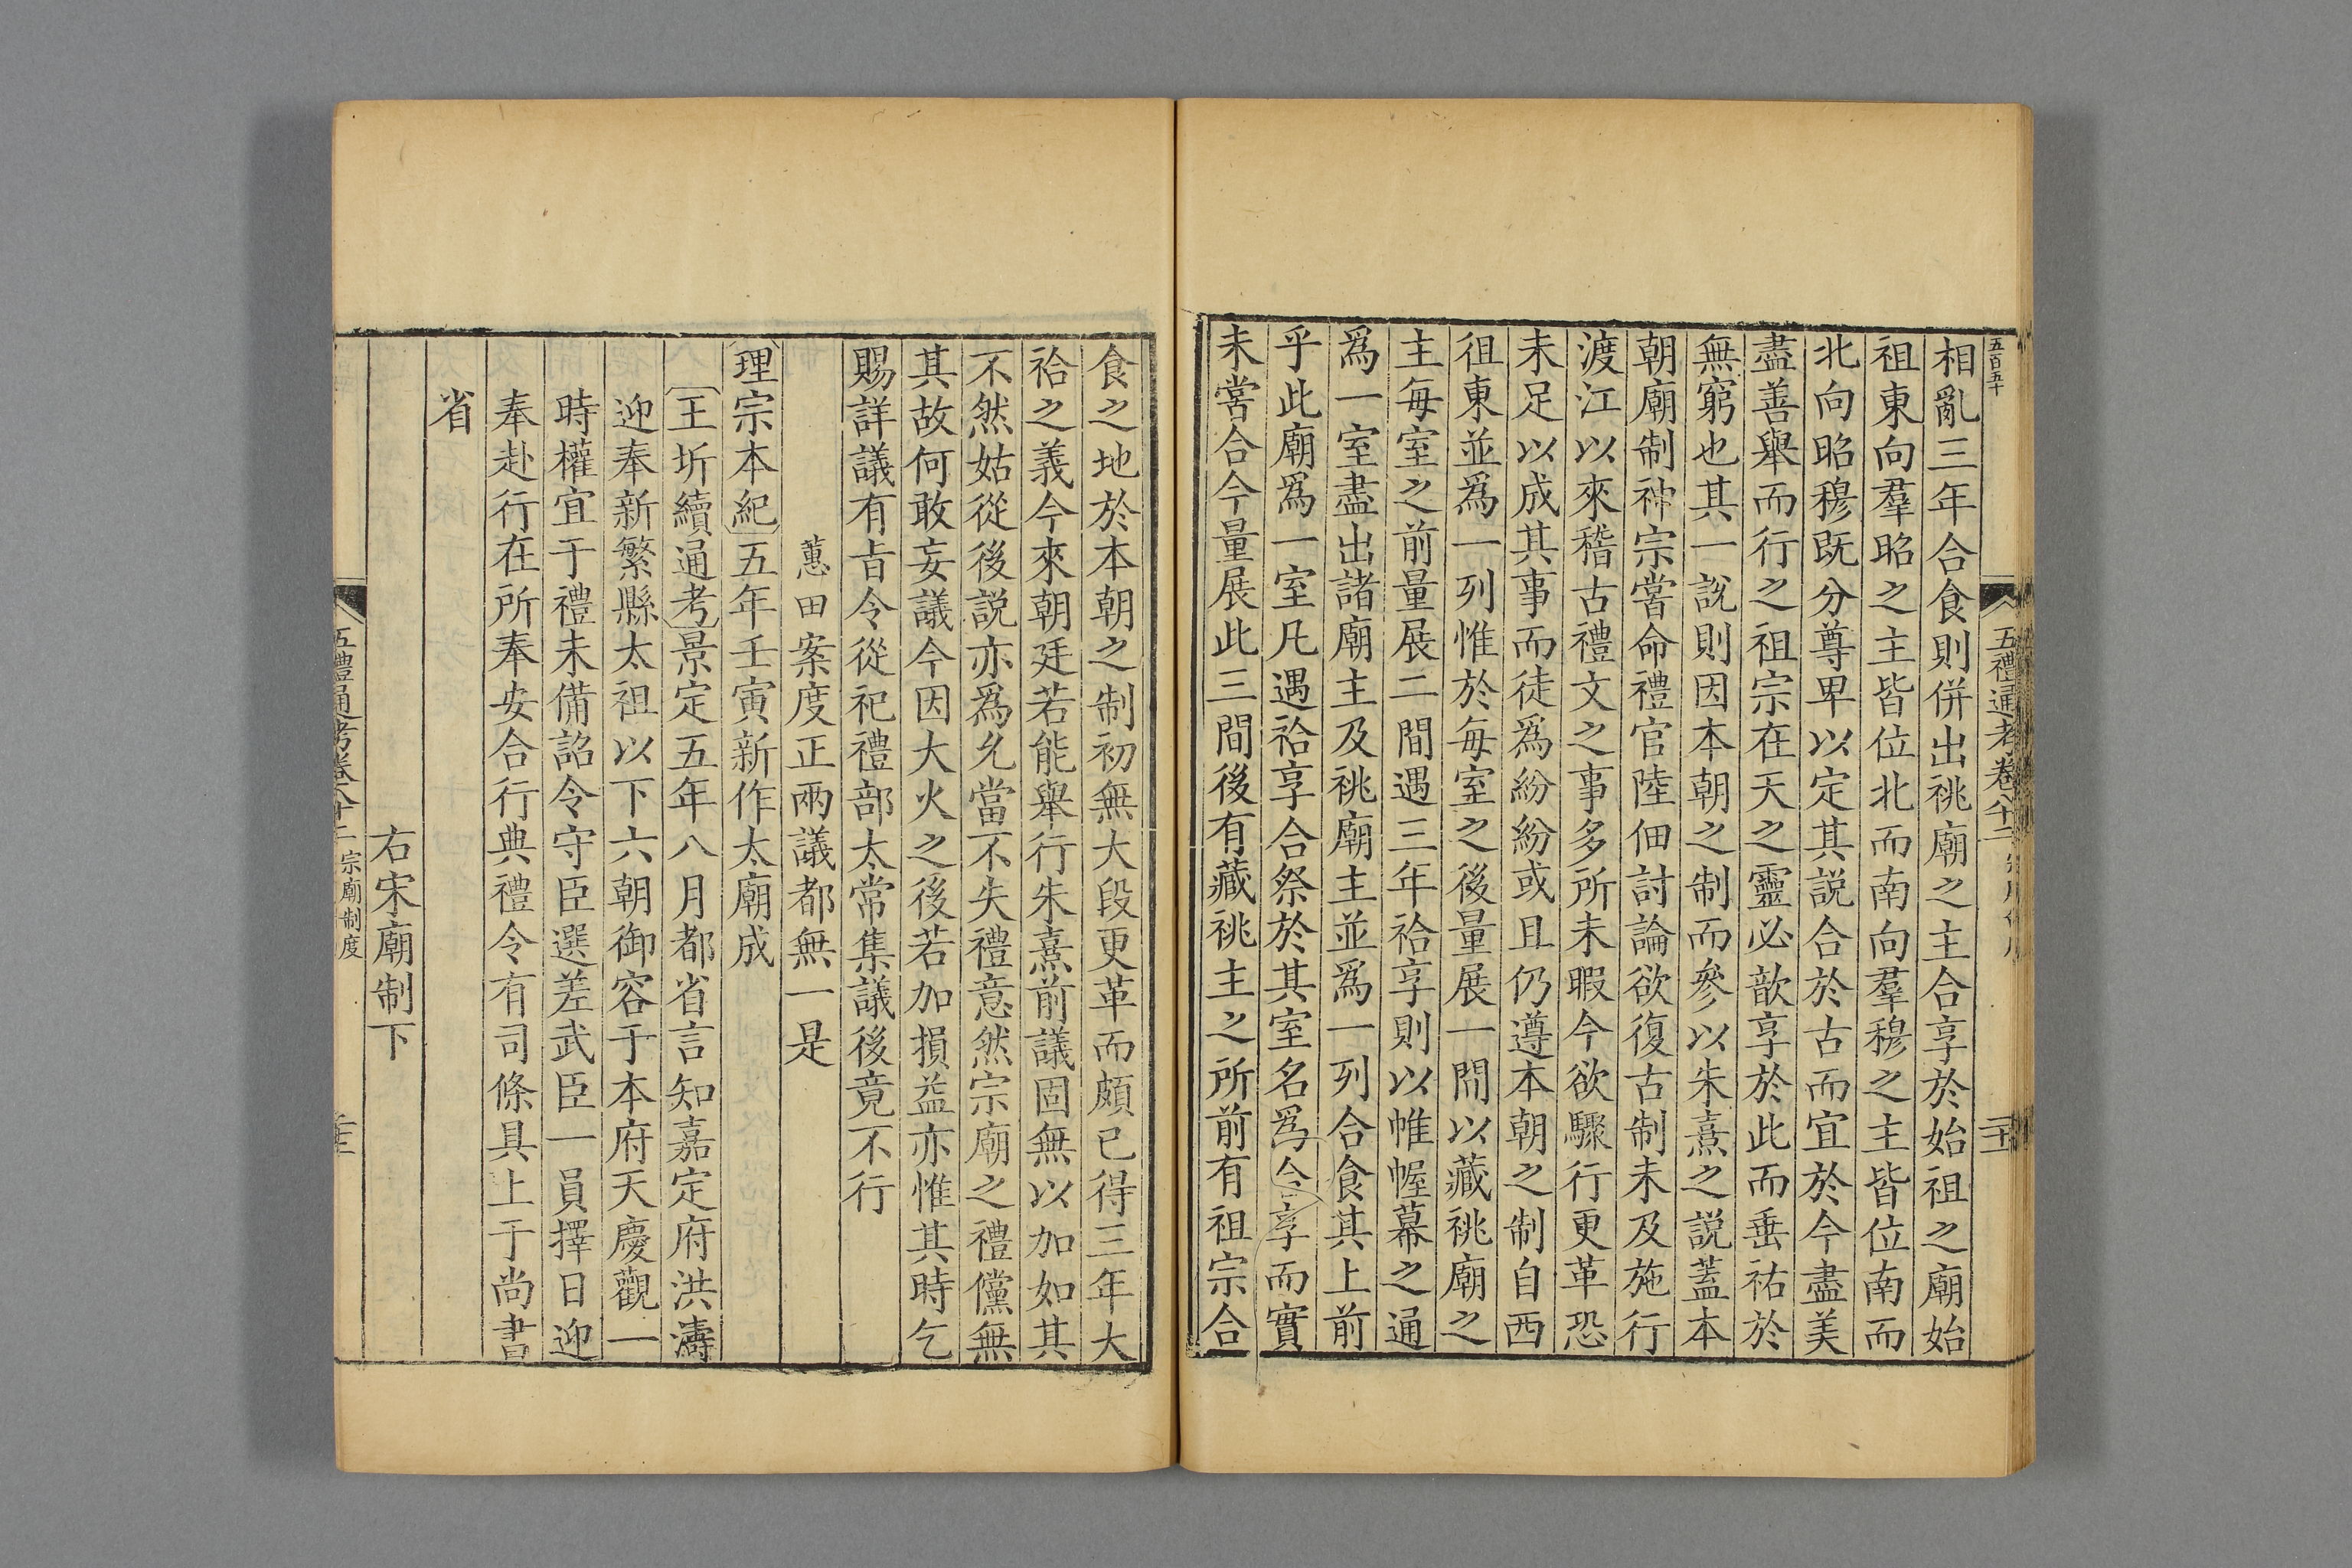 五百五十
五禮通考卷八十二
相亂三年合食則併出祧廟之主合享於始祖之廟始
祖東向羣昭之主皆位北而南向羣穆之主皆位南而
北向昭穆既分尊卑以定其説合於古而宜於今盡美
盡善舉而行之祖宗在天之靈必歆享於此而垂祐於
無窮也其一説則因本朝之制而參以朱熹之説蓋本
朝廟制神宗嘗命禮官陸佃討論欲復古制未及施行
渡江以來稽古禮文之事多所未暇今欲驟行更革恐
未足以成其事而徒爲紛紛或且仍遵本朝之制自西
徂東並爲一列惟於每室之後量展一間以藏祧廟之
主每室之前量展二間遇三年祫享則以帷幄幕之通
爲一室盡出諸廟主及祧廟主並爲一列合食其上前
乎此廟爲一室凡遇祫享合祭於其室名爲合享而實
未嘗合今量展此三間後有藏祧主之所前有祖宗合
食之地於本朝之制初無大段更革而頗已得三年大
祫之義今來朝廷若能舉行朱熹前議固無以加如其
不然姑從後説亦爲允當不失禮意然宗廟之禮儻無
其故何敢妄議今因大火之後若加損益亦惟其時乞
賜詳議有旨令從祀禮部太常集議後竟不行
蕙田案度正兩議都無一是
理宗本紀五年壬寅新作太廟成
王圻續通考景定五年八月都省言知嘉定府洪濤
迎奉新繁縣太祖以下六朝御容于本府天慶觀一
時權宜于禮未備詔令守臣選差武臣一員擇日迎
奉赴行在所奉安合行典禮令有司條具上于尚書
省
右宋廟制下
五禮通考卷八十二 宗廟制度